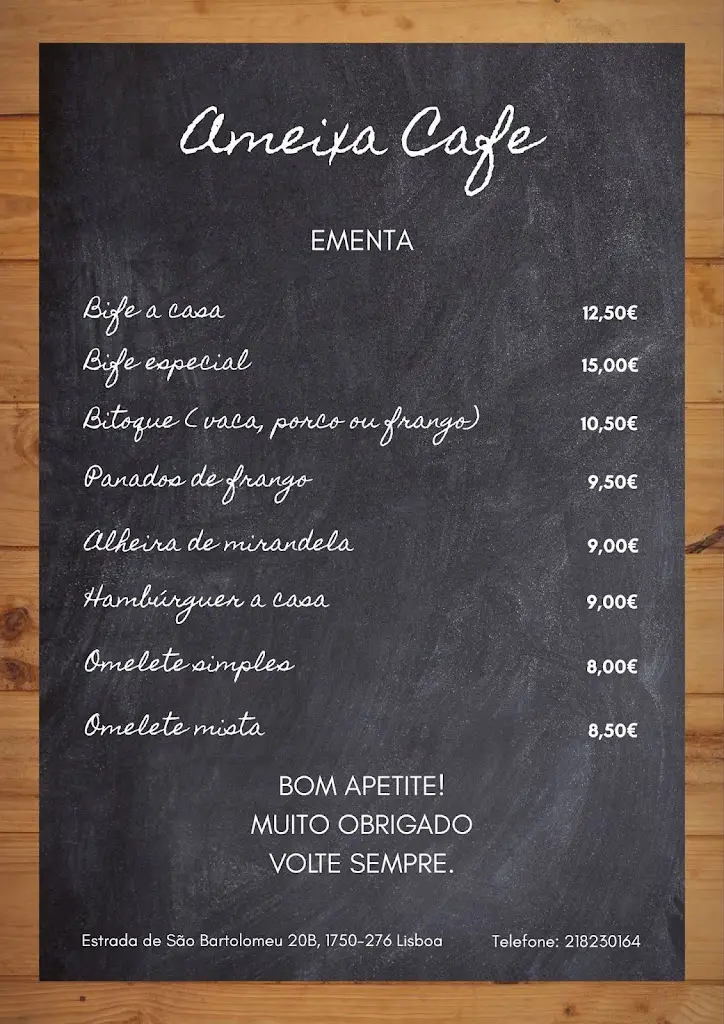 Ameixa Cafe
EMENTA
Bife a casa 12,50€
Bife especial 15,00€
Bitoque ( vaca, porco ou frango) 10,50€
Panados de frango 9,50€
Alheira de mirandela 9,00€
Hambúrguer a casa 9,00€
Omelete simples 8,00€
Omelete mista 8,50€
BOM APETITE!
MUITO OBRIGADO
VOLTE SEMPRE.
Estrada de São Bartolomeu 20B, 1750-276 Lisboa Telefone: 218230164